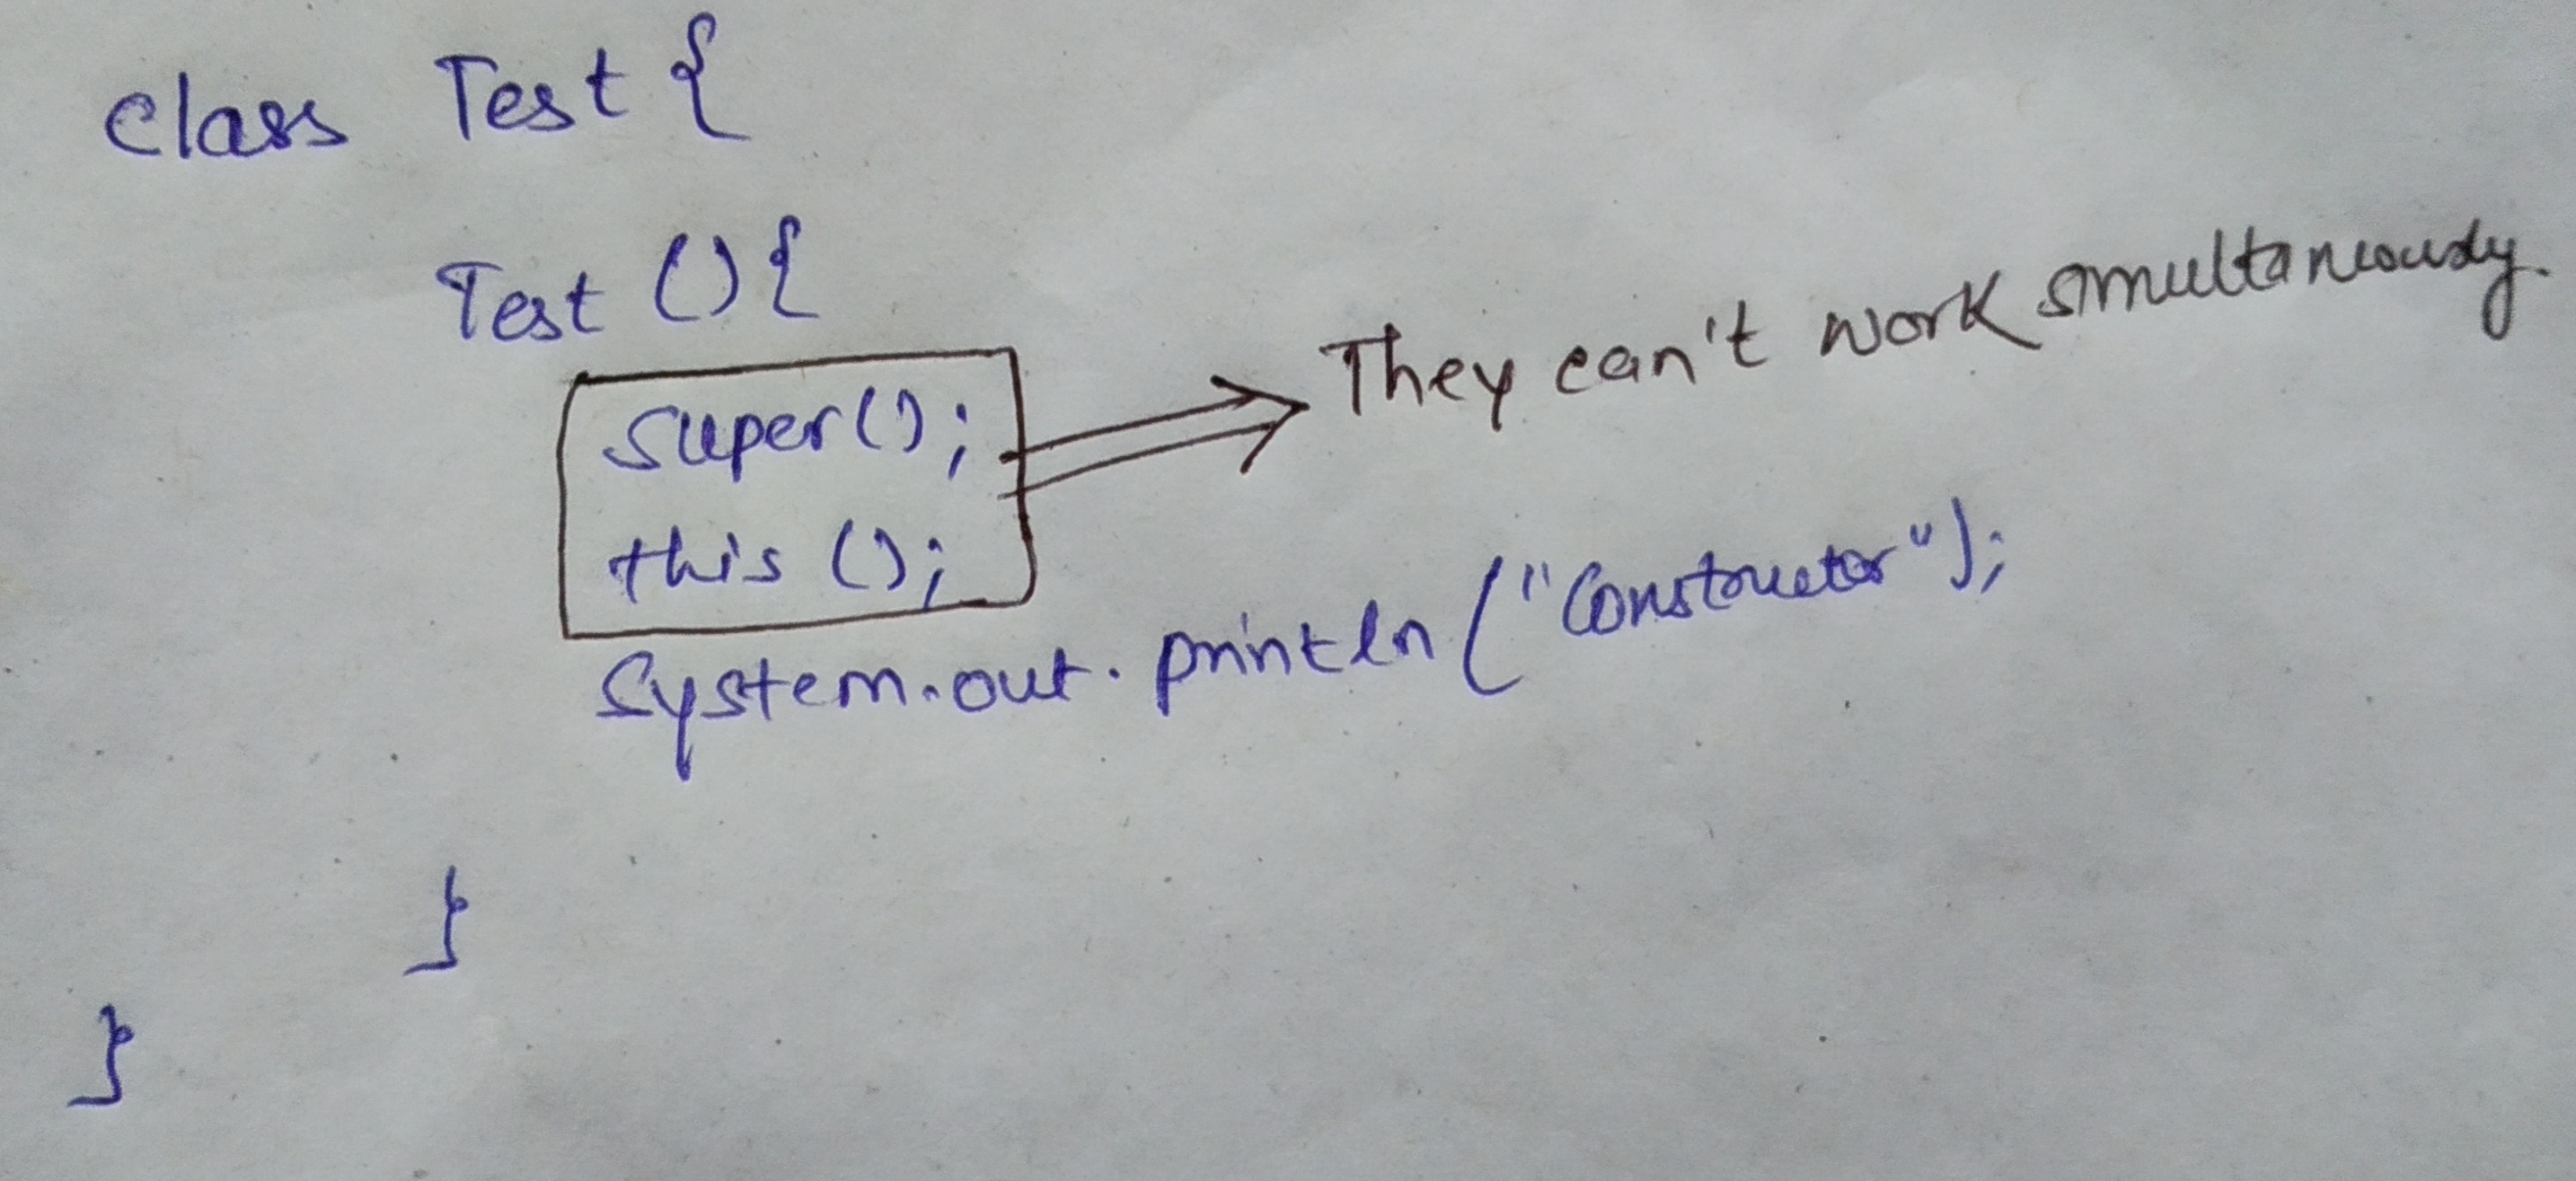 class Test {
Test () {
super();
They can't work simultaneously.
this ();
System.out.println ("Constructor");
}
}